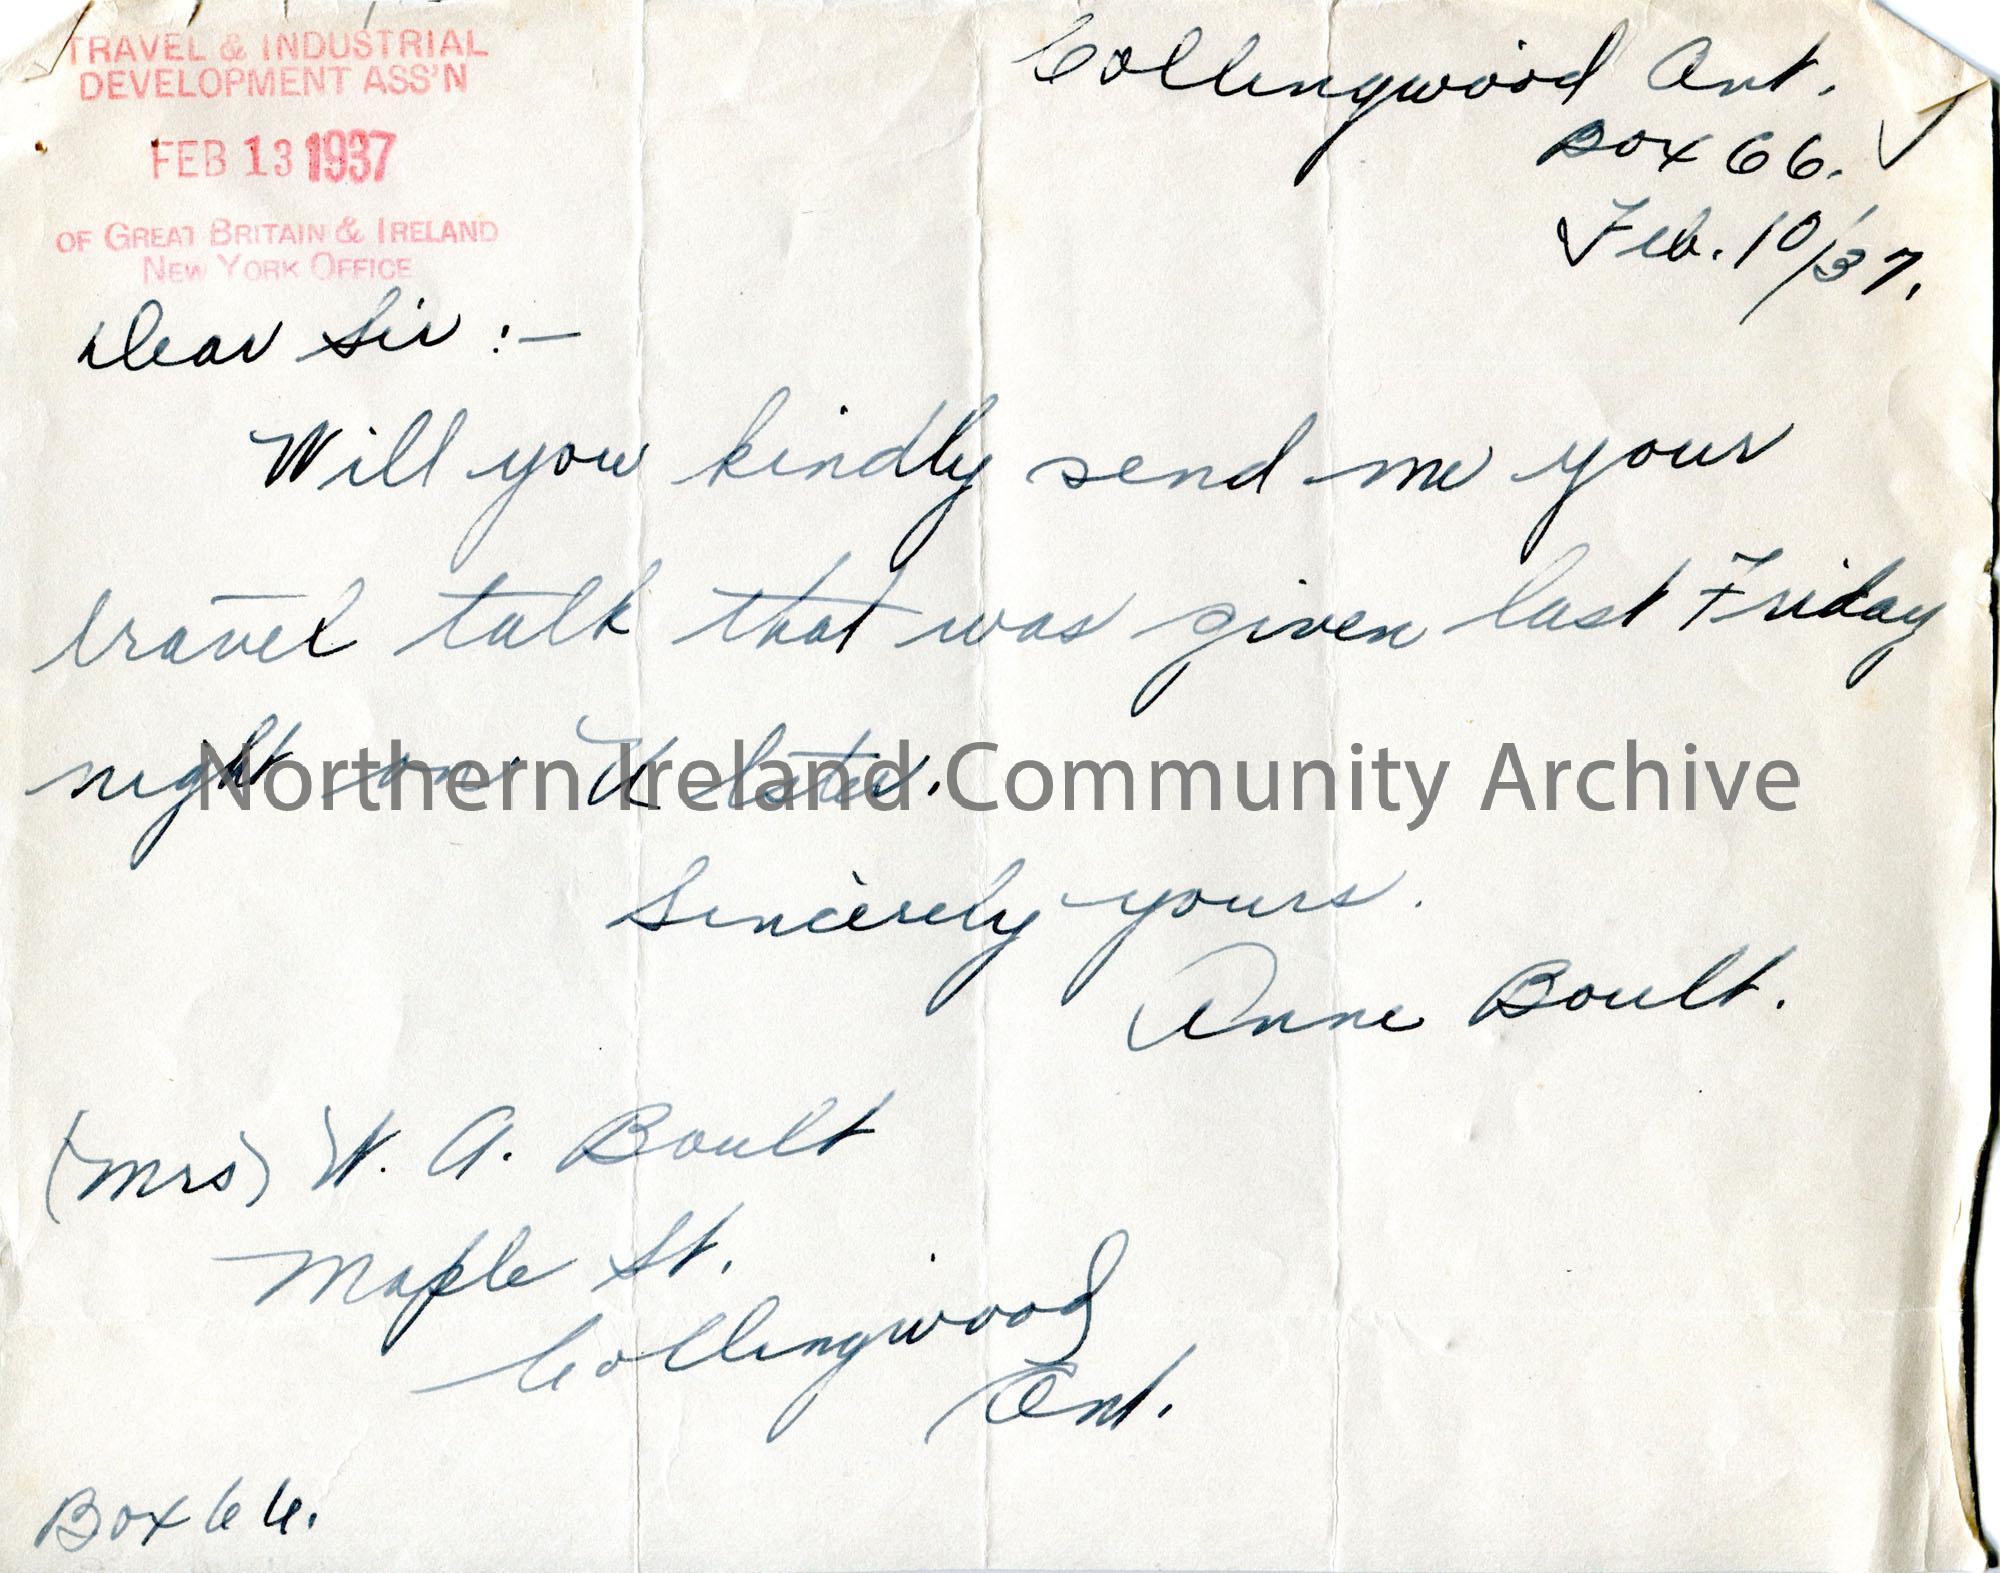 TRAVEL & INDUSTRIAL
DEVELOPMENT ASS'N
FEB 13 1937
OF GREAT BRITAIN & IRELAND
NEW YORK OFFICE
Collingwood Ont.
Box 66.
Feb. 10/37.
Dear Sir :-
Will you kindly send me your
travel talk that was given last Friday
night on Ulster.
Northern Ireland Community Archive
Sincerely yours.
Anne Boult.
(Mrs) W. A. Boult
Maple St.
Collingwood
Ont.
Box 66.